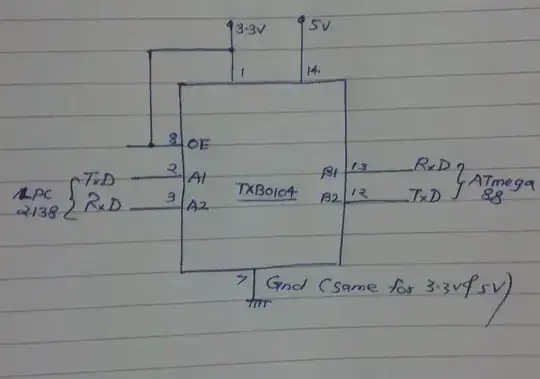 3.3V 5V
1 14
8 OE
2 A1 B1 13 RxD
TxD
LPC
2138
TXB0104
ATmega
88
RxD 3 A2 B2 12 TxD
7 Gnd (same for 3.3V & 5V)